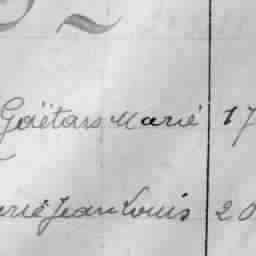 Gaëtan Marie 17
Marie Jean Louis 20